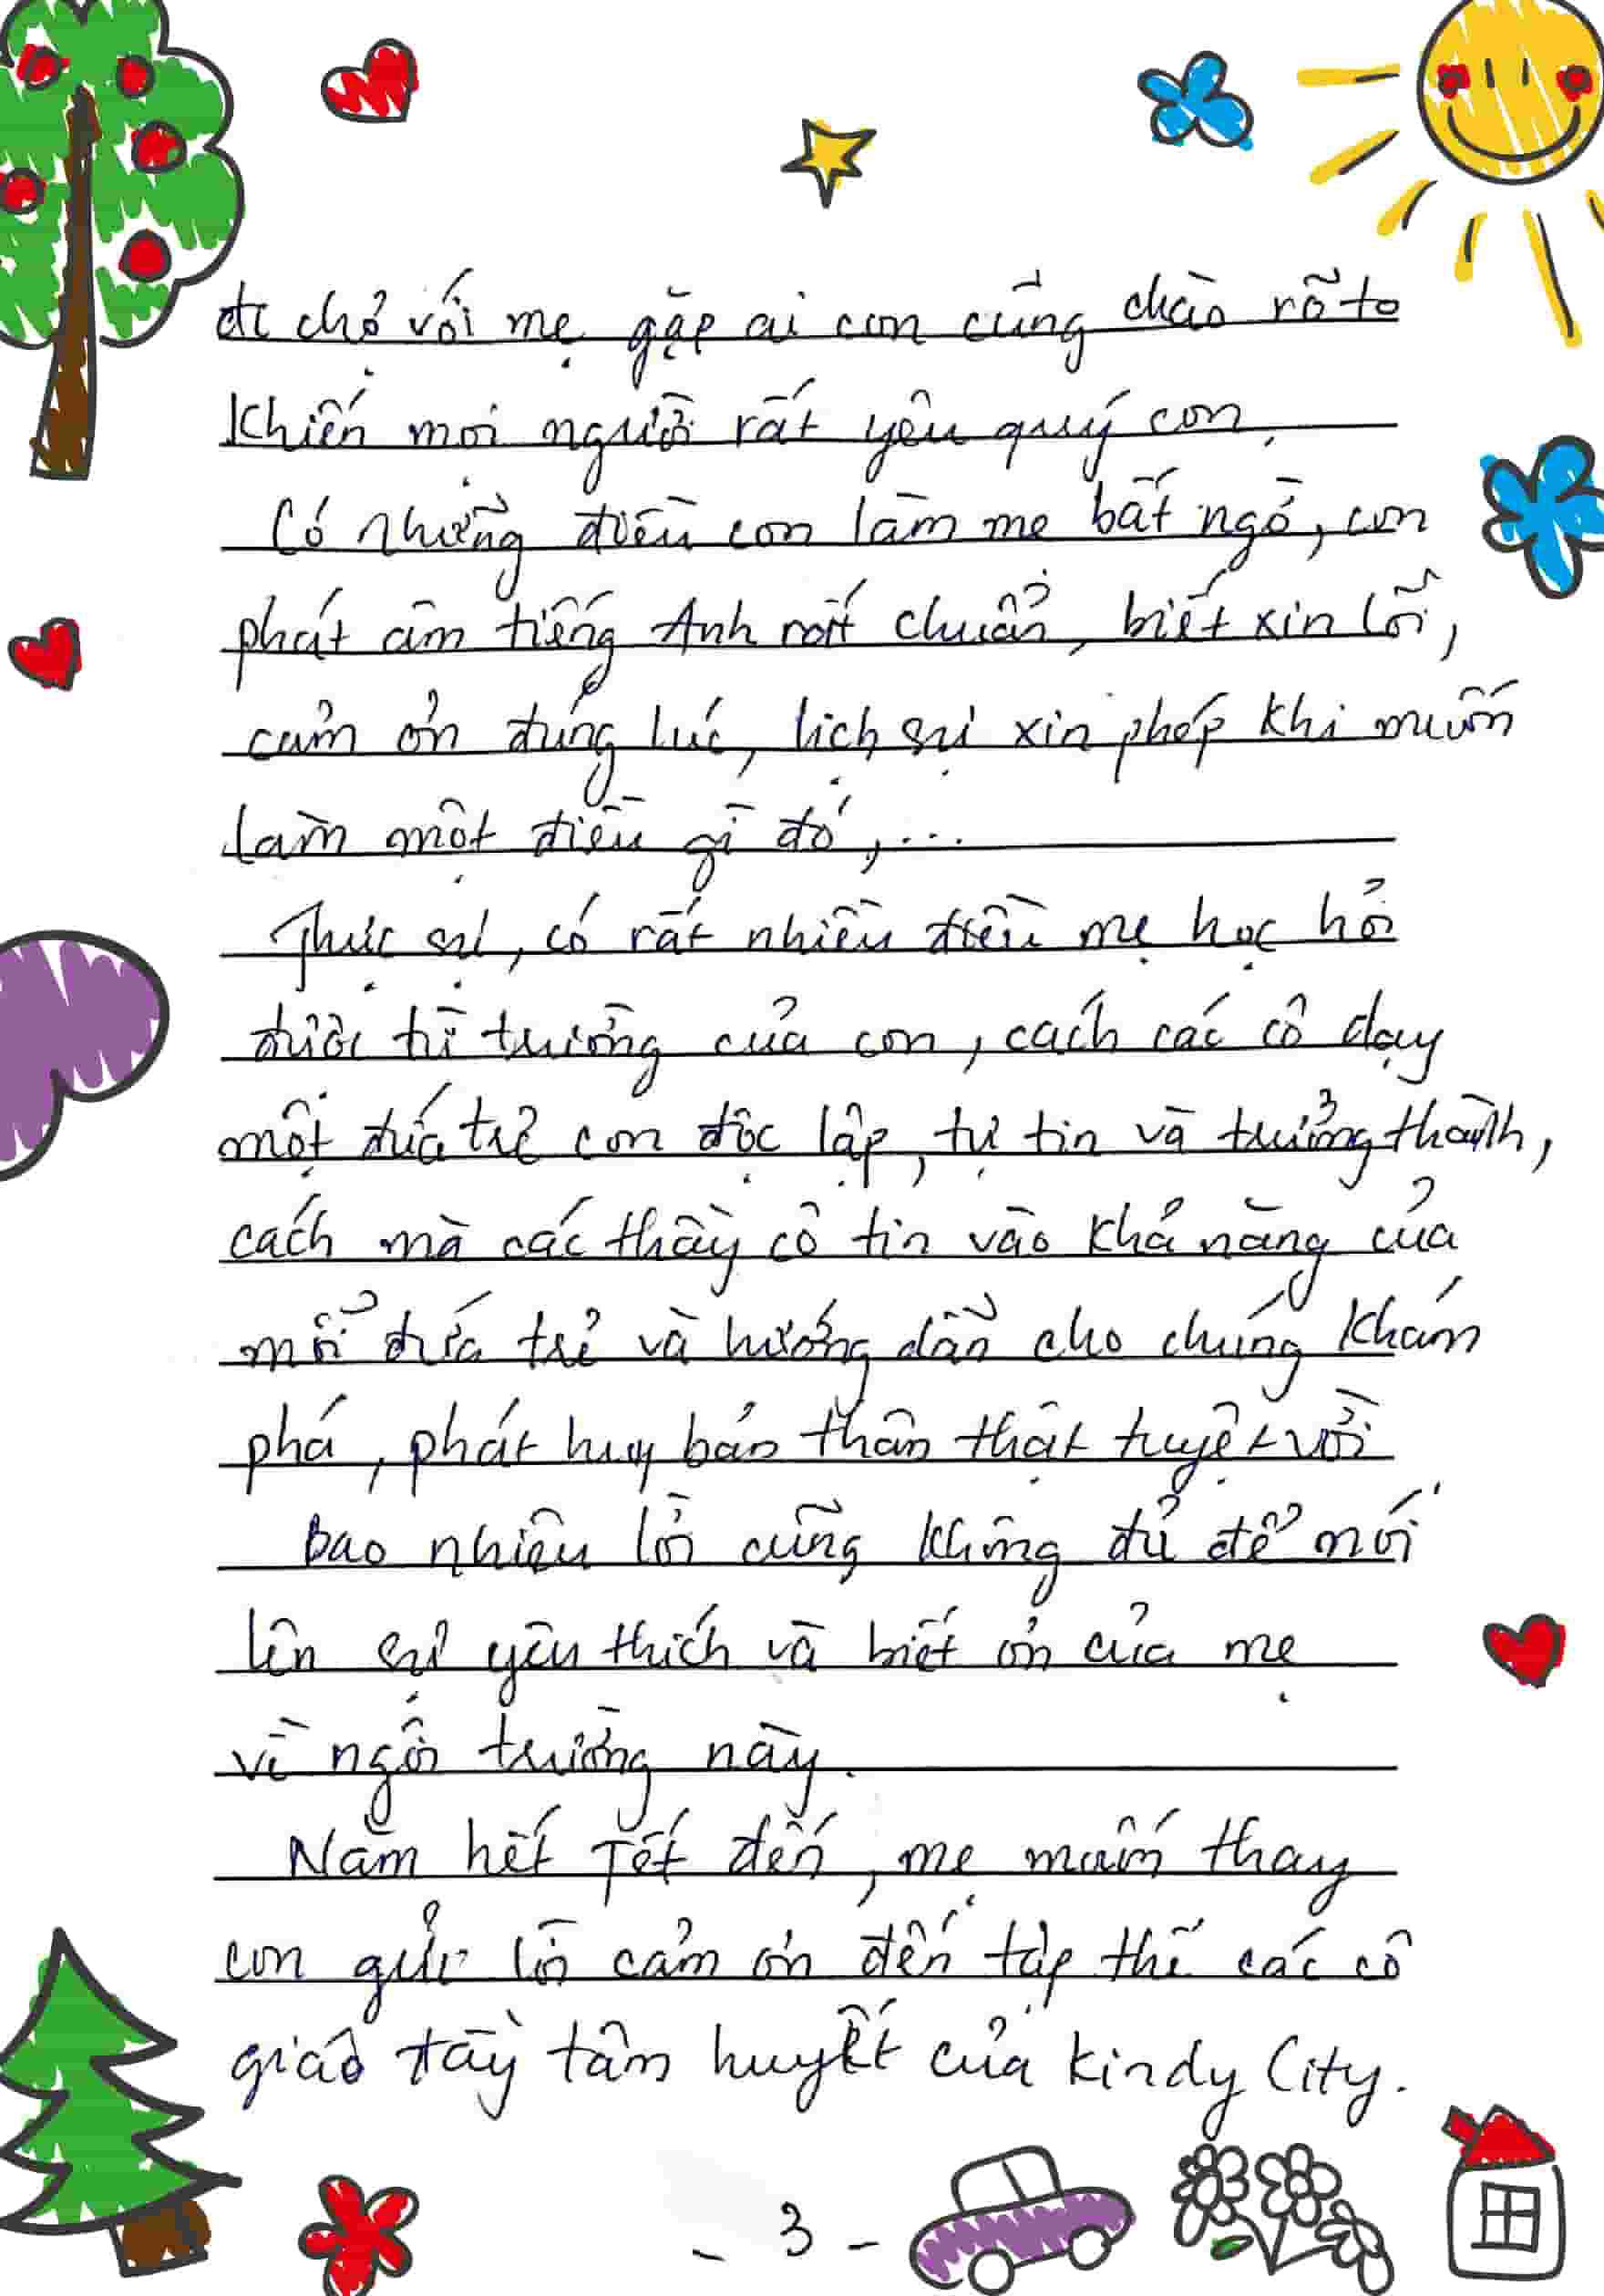 đi chợ với mẹ gặp ai con cũng chào rõ to
khiến mọi người rất yêu quý con.
Có những điều con làm mẹ bất ngờ, con
phát âm tiếng Anh rất chuẩn, biết xin lỗi,
cảm ơn đúng lúc, lịch sự xin phép khi muốn
làm một điều gì đó, ...
Thực sự, có rất nhiều điều mẹ học hỏi
được từ trường của con, cách các cô dạy
một đứa trẻ con độc lập, tự tin và trưởng thành,
cách mà các thầy cô tin vào khả năng của
mỗi đứa trẻ và hướng dẫn cho chúng khám
phá, phát huy bản thân thật tuyệt vời
Bao nhiêu lời cũng không đủ để nói
lên sự yêu thích và biết ơn của mẹ
về ngôi trường này.
Năm hết Tết đến, mẹ muốn thay
con gửi lời cảm ơn đến tập thể các cô
giáo đầy tâm huyết của Kindy City.
- 3 -